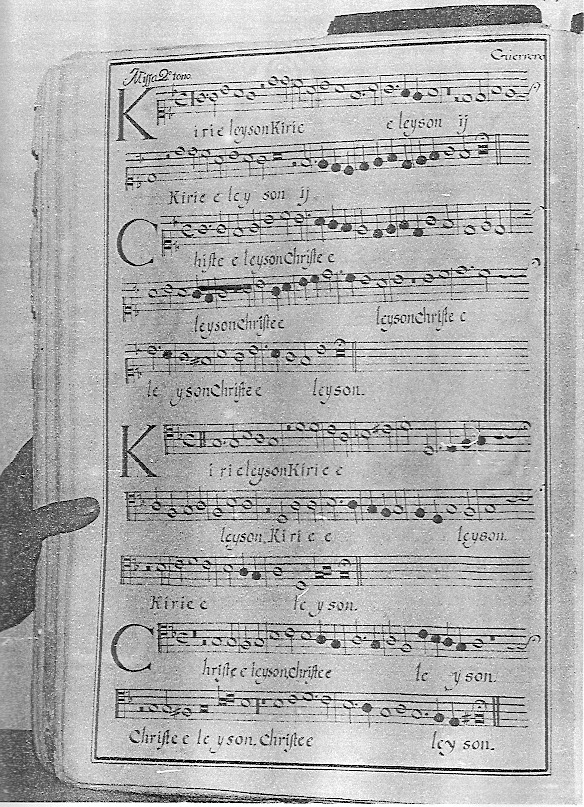 Missa 2º tono. Guerrero
Kirie eleyson Kirie eleyson ij
Kirie eleyson ij
Christe eleyson Christe e
leyson Christe e leyson Christe e
leyson Christe e leyson.
Kirie leyson Kirie e
leyson. Kirie e leyson.
Kirie e leyson.
Christe e leyson, Christe e leyson.
Christe e leyson. Christe e leyson.